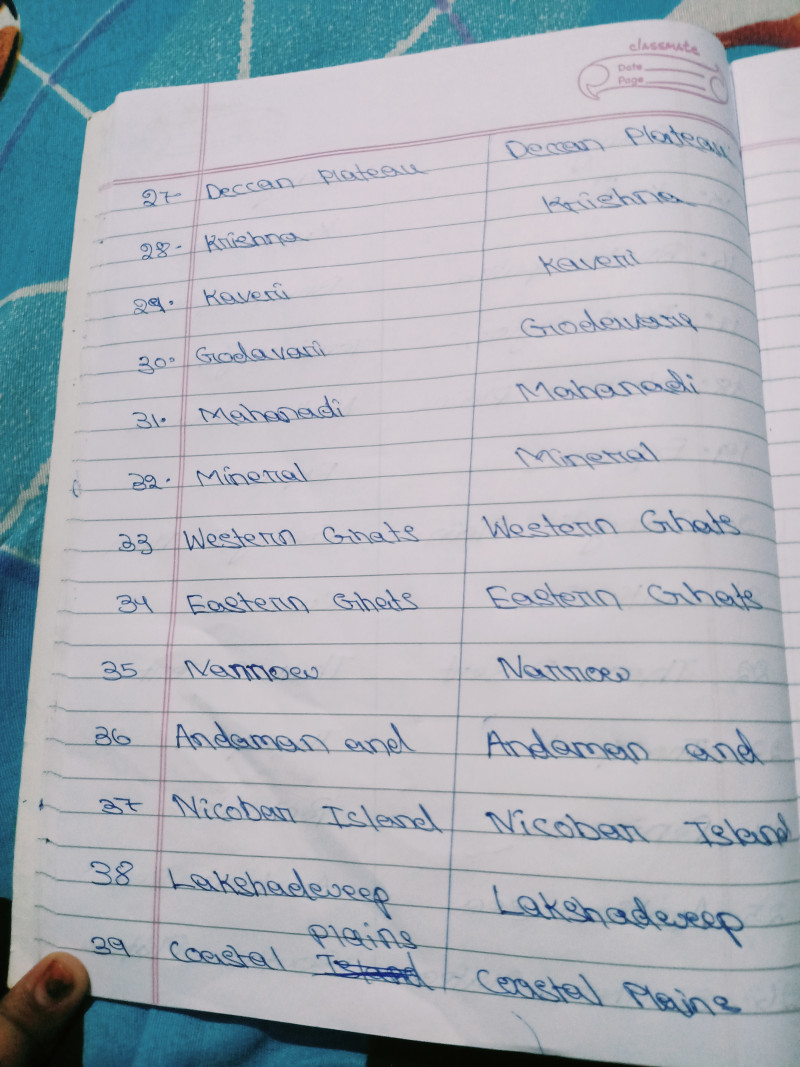 classmate
Date
Page
27 Deccan Plateau Deccan Plateau
28. Krishna Krishna
29. Kaveri Kaveri
30. Godavari Godavari
31. Mahanadi Mahanadi
32. Mineral Mineral
33 Western Ghats Western Ghats
34 Eastern Ghats Eastern Ghats
35 Narrow Narrow
36 Andaman and Andaman and
37 Nicobar Island Nicobar Island
38 Lakshadweep Lakshadweep
plains
39 Coastal Island Coastal Plains